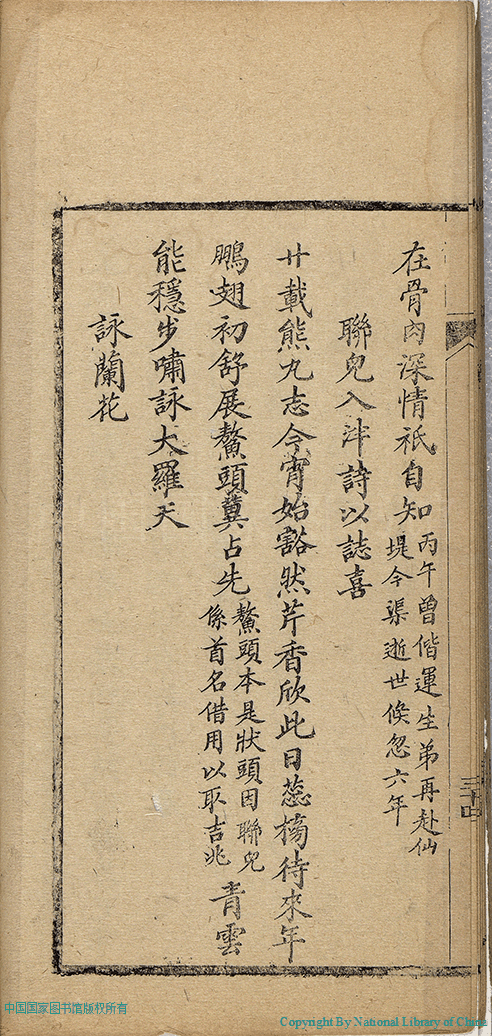 在骨肉深情祇自知丙午曾偕運生弟再赴仙
堤今渠逝世倏忽六年
聯兒入泮詩以誌喜
廿載熊丸志今宵始豁然芹香欣此日蕊榜待來年
鵬翅初舒展鰲頭冀占先鰲頭本是狀頭因聯兒
係首名借用以取吉兆青雲
能穩步嘯詠大羅天
詠蘭花
三十四
中国国家图书馆版权所有
Copyright By National Library of China